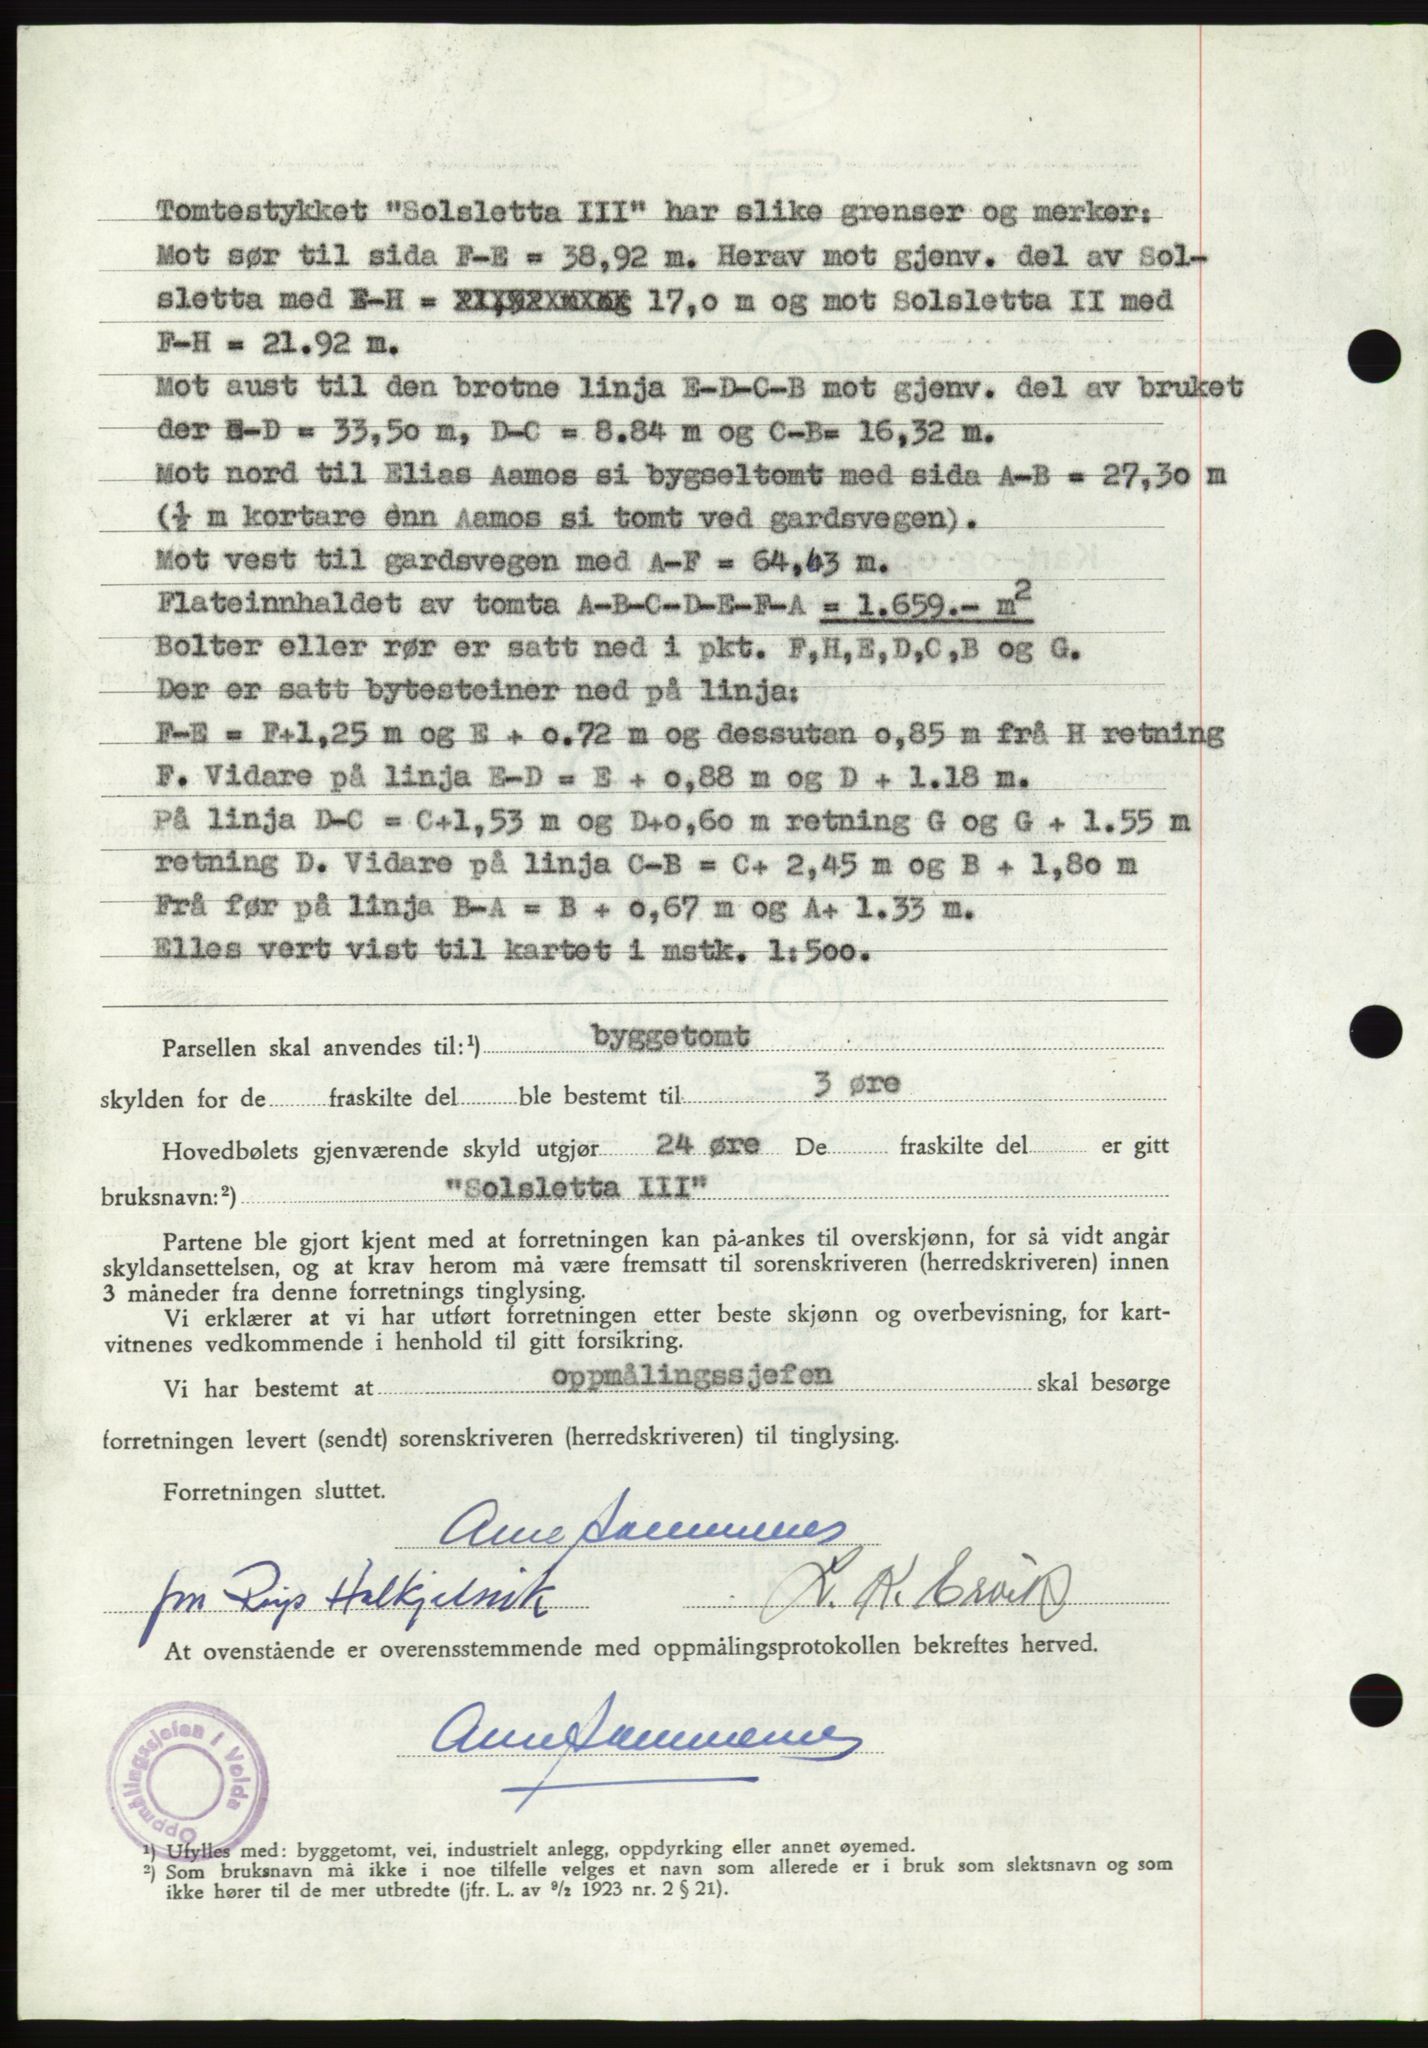 Tomtestykket "Solsletta III" har slike grenser og merker:
Mot sør til sida F-E = 38,92 m. Herav mot gjenv. del av Sol-
sletta med E-H = 17,o m og mot Solsletta II med
F-H = 21.92 m.
Mot aust til den brotne linja E-D-C-B mot gjenv. del av bruket
der E-D = 33,50 m, D-C = 8.84 m og C-B= 16,32 m.
Mot nord til Elias Aamos si bygseltomt med sida A-B = 27,30 m
(½ m kortare enn Aamos si tomt ved gardsvegen).
Mot vest til gardsvegen med A-F = 64,43 m.
Flateinnhaldet av tomta A-B-C-D-E-F-A = 1.659.- m²
Bolter eller rør er satt ned i pkt. F,H,E,D,C,B og G.
Der er satt bytesteiner ned på linja:
F-E = F+1,25 m og E + o.72 m og dessutan o,85 m frå H retning
F. Vidare på linja E-D = E + o,88 m og D + 1.18 m.
På linja D-C = C+1,53 m og D+o,6o m retning G og G + 1.55 m
retning D. Vidare på linja C-B = C+ 2,45 m og B + 1,8o m
Frå før på linja B-A = B + o,67 m og A+ 1.33 m.
Elles vert vist til kartet i mstk. 1:5oo.
Parsellen skal anvendes til:¹) byggetomt
skylden for de fraskilte del ble bestemt til 3 øre
Hovedbølets gjenværende skyld utgjør 24 øre De fraskilte del er gitt
bruksnavn:²) "Solsletta III"
Partene ble gjort kjent med at forretningen kan på-ankes til overskjønn, for så vidt angår
skyldansettelsen, og at krav herom må være fremsatt til sorenskriveren (herredskriveren) innen
3 måneder fra denne forretnings tinglysing.
Vi erklærer at vi har utført forretningen etter beste skjønn og overbevisning, for kart-
vitnenes vedkommende i henhold til gitt forsikring.
Vi har bestemt at oppmålingssjefen skal besørge
forretningen levert (sendt) sorenskriveren (herredskriveren) til tinglysing.
Forretningen sluttet.
Halkjelsvik
L. K. Ervik
At ovenstående er overensstemmende med oppmålingsprotokollen bekreftes herved.
Oppmålingssjefen i Volda
¹) Utylles med: byggetomt, vei, industrielt anlegg, oppdyrking eller annet øyemed.
²) Som bruksnavn må ikke i noe tilfelle velges et navn som allerede er i bruk som slektsnavn og som
ikke hører til de mer utbredte (jfr. L. av ⁹/₂ 1923 nr. 2 § 21).